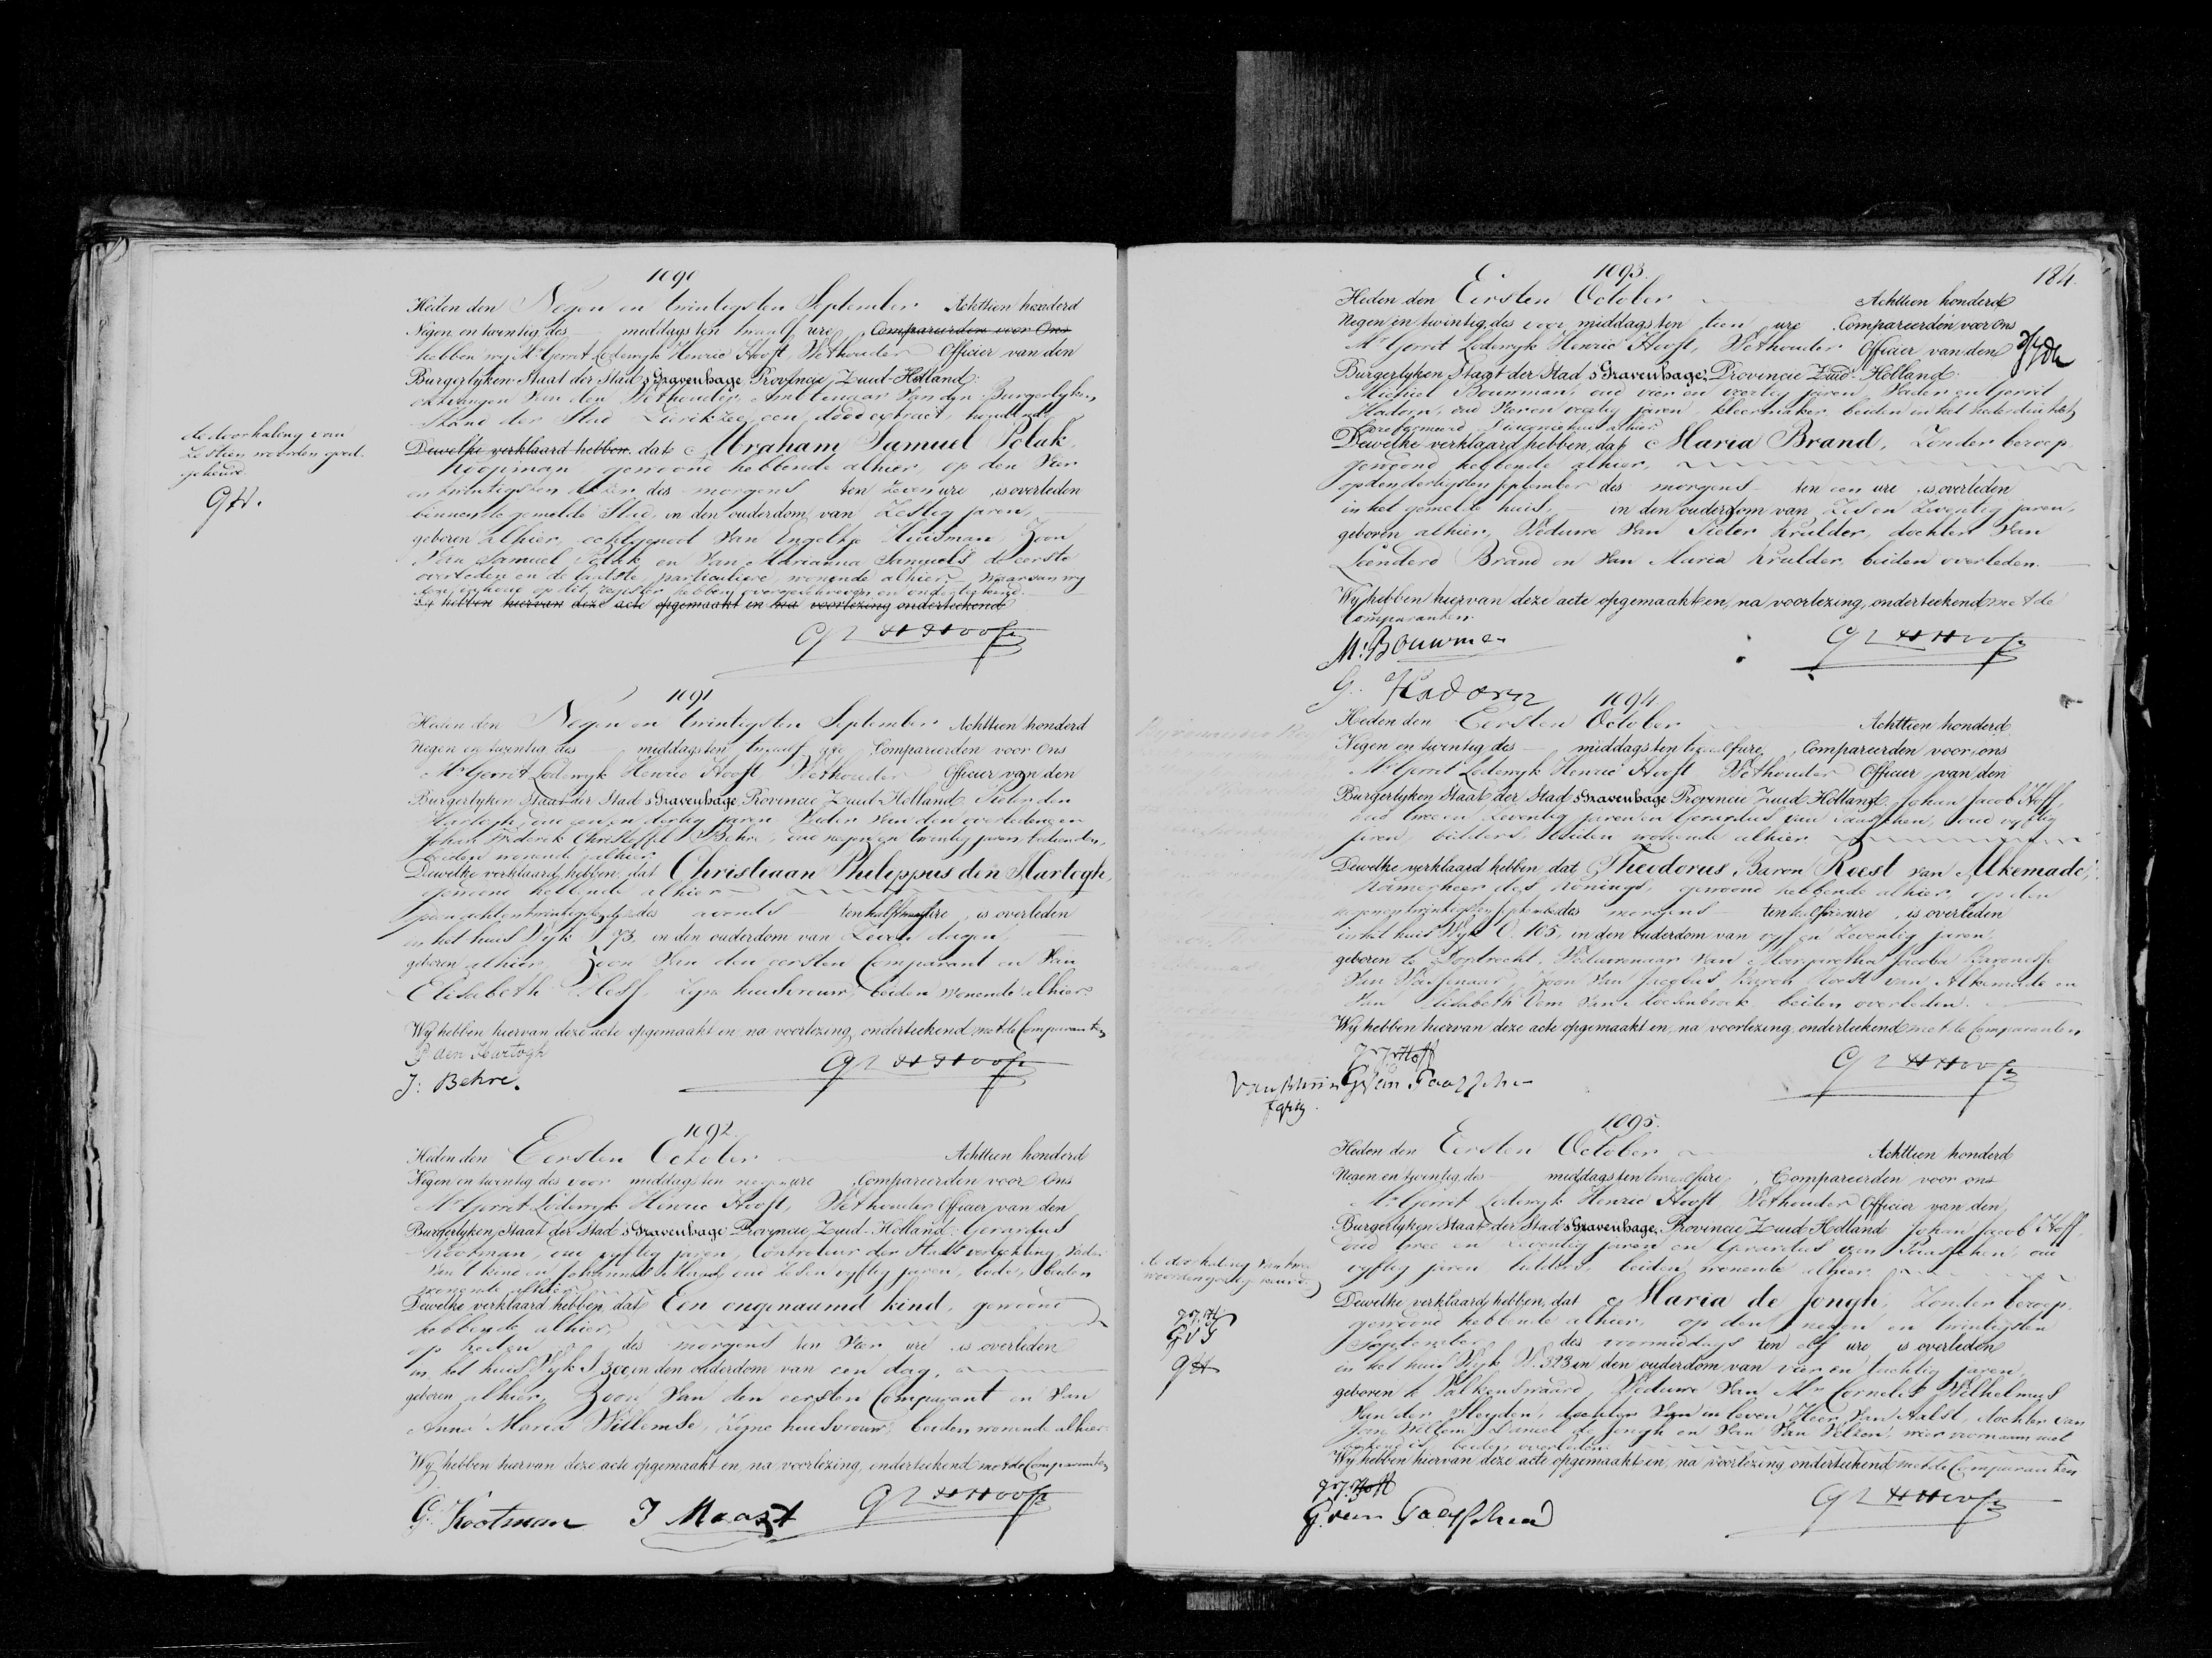 1090
Heden den Negen en twintigsten September Achttien honderd
Negen en twintig des middags ten twaalf ure, Compareerden voor Ons
hebben wy Mr. Gerrit Lodewyk Henric Hooft, Wethouder Officier van den
Burgerlyken Staat der Stad s Gravenhage, Provincie Zuid-Holland
ontvangen van den Wethouder, Ambtenaar van den Burgerlyken
Stand der Stad Zierikzee een dood extract, houdende
Dewelke verklaard hebben dat Abraham Samuel Polak,
Koopman gewoond hebbende alhier, op den vier
en twintigsten dezer des morgens ten zeven ure is overleden
binnen de gemelde Stad, in den ouderdom van Zestig jaren,
geboren alhier, echtgenoot van Engeltje Huisman, Zoon
van Samuel Polak en van Adrianna Samuels de eerste
overleden en de laatste particuliere, wonende alhier, waarvan wy
deze acte op dit register hebben overgeschreven en onderteekend.
Wy hebben hiervan deze acte opgemaakt en na voorlezing onderteekend
G L H Hooft
de doorhaling van
zestien woorden goed-
gekeurd.
GH.
1091
Heden den Negen en twintigsten September Achttien honderd
Negen en twintig des middags ten twaalf ure Compareerden voor Ons
Mr. Gerrit Lodewyk Henric Hooft Wethouder Officier van den
Burgerlyken Staat der Stad s Gravenhage, Provincie Zuid-Holland Pieter den
Hartogh, oud een en dertig jaren Vader van den overledene en
Johan Frederik Christoffel Behre, oud negen en twintig jaren, bedienden,
beiden wonende alhier
Dewelke verklaard hebben, dat Christiaan Philippus den Hartogh,
gewoond hebbende alhier
des avonds ten half ure, is overleden
in het huis Wyk 73, in den ouderdom van Zeven dagen,
geboren alhier, Zoon van den eersten Comparant en van
Elisabeth Hess, zyne huisvrouw, beiden wonende alhier.
Wy hebben hiervan deze acte opgemaakt en na voorlezing, onderteekend met de Comparanten
P den Hartogh
J: Behre.
G L H Hooft
1092.
Heden den Eersten October Achttien honderd
Negen en twintig des voor middags ten negen ure Compareerden voor Ons
Mr. Gerrit Lodewyk Henric Hooft, Wethouder Officier van den
Burgerlyken Staat der Stad s Gravenhage Provincie Zuid-Holland Gerardus
Kootman, oud vyftig jaren, Controleur der Stads verlichting, Vader
van 't kind en Johannes Maast, oud Zes en vyftig jaren, bode, beiden
wonende alhier
Dewelke verklaard hebben, dat Een ongenaamd kind, gewoond
hebbende alhier,
op heden des morgens ten vier ure is overleden
in het huis Wyk I 300, in den ouderdom van een dag,
geboren alhier, Zoon van den eersten Comparant en van
Anna Maria Willemse, zyne huisvrouw, beiden wonende alhier.
Wy hebben hiervan deze acte opgemaakt en na voorlezing, onderteekend met de Comparanten
G. Kootman J Maast G L H Hooft
184.
1093.
Heden den Eersten October Achttien honderd
Negen en twintig des voor middags ten tien ure Compareerden voor Ons
Mr. Gerrit Lodewyk Henric Hooft, Wethouder Officier van den
Burgerlyken Staat der Stad s Gravenhage, Provincie Zuid-Holland
Michiel Bouwman, oud vier en veertig jaren Vader en Gerrit
Hadorn, oud veertig jaren, kleermaker, beiden in het nederduitsch
Gereformeerd Diaconiehuis alhier
Dewelke verklaard hebben, dat Maria Brand, Zonder beroep
gewoond hebbende alhier,
op den dertigsten September des morgens ten een ure is overleden
in het gemelde huis, in den ouderdom van Zes en Zeventig jaren,
geboren alhier, Weduwe van Pieter Krulder, dochter van
Leendert Brand en van Maria Krulder, beiden overleden.
Wy hebben hiervan deze acte opgemaakt en, na voorlezing, onderteekend met de
Comparanten.
M: Bouwman
G L H Hooft
G. Hadorn
1094
Heden den Eersten October Achttien honderd
Negen en twintig des middags ten twaalf ure, Compareerden voor ons
Mr. Gerrit Lodewyk Henric Hooft Wethouder Officier van den
Burgerlyken Staat der Stad s Gravenhage Provincie Zuid Holland Johan Jacob Hoff,
oud twee en Zeventig jaren en Gerardus van Paasschen, oud vyftig
jaren, bidders, beiden wonende alhier
Dewelke verklaard hebben dat Theodorus, Baron Roest van Alkemade,
Kamerheer des Konings, gewoond hebbende alhier, op den
negen en twintigsten September des morgens ten half ure, is overleden
in het huis Wyk O. 105, in den ouderdom van vyf en Zeventig jaren,
geboren te Dordrecht, Weduwenaar van Margaretha Jacoba Baronesse
van Wassenaar, Zoon van Jacobus Baron Roest van Alkemade en
van Elisabeth Oem van Moesenbroek beiden overleden.
Wy hebben hiervan deze acte opgemaakt en, na voorlezing, onderteekend met de Comparanten
J. J. Hoff
G van Paasschen
G L H Hooft
1095.
Heden den Eersten October Achttien honderd
Negen en twintig des middags ten twaalf ure, Compareerden voor ons
Mr. Gerrit Lodewyk Henric Hooft Wethouder Officier van den
Burgerlyken Staat der Stad s Gravenhage, Provincie Zuid Holland Johan Jacob Hoff,
oud twee en Zeventig jaren en Gerardus van Paasschen, oud
vyftig jaren, bidders, beiden wonende alhier
Dewelke verklaard hebben, dat Maria de Jongh, Zonder beroep,
gewoond hebbende alhier, op den negen en twintigsten
September des voormiddags ten elf ure is overleden
in het huis Wyk W. 323 in den ouderdom van vier en tachtig jaren,
geboren te Valkenswaard, Weduwe van Mr Cornelis Wilhelmus
van der Heyden, dochter van in leven Heer van Aalst, dochter van
Jan Willem Daniel de Jongh en van Van Velzen, wier voornaam niet
bekend is, beiden overleden
Wy hebben hiervan deze acte opgemaakt en, na voorlezing onderteekend met de Comparanten
J. J. Hoff
G. van Paasschen
G L H Hooft
de doorhaling van twee
woorden goedgekeurd.
J. J. H
G v P
GH